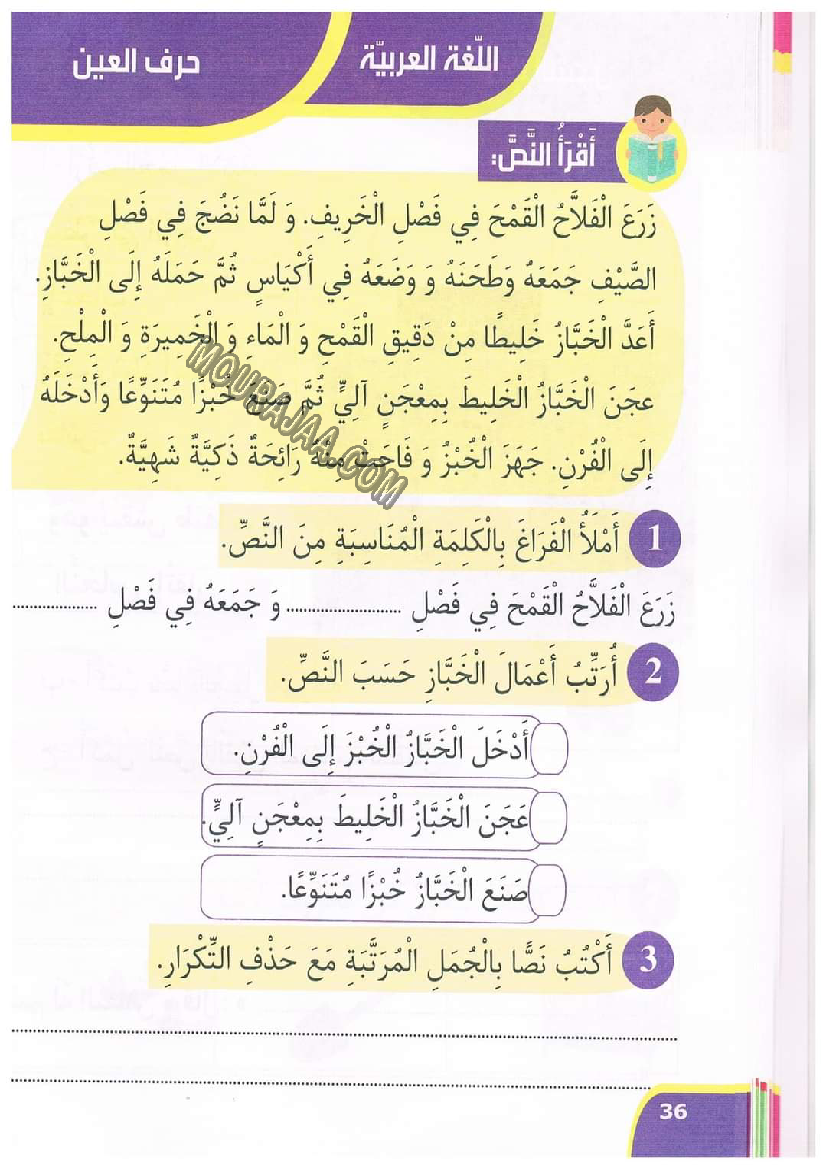 اللّغة العربيّة
حرف العين
أَقْرَأُ النَّصَّ:
زَرَعَ الْفَلاَّحُ الْقَمْحَ فِي فَصْلِ الْخَرِيفِ. وَ لَمَّا نَضُجَ فِي فَصْلِ
الصَّيْفِ جَمَعَهُ وَطَحَنَهُ وَ وَضَعَهُ فِي أَكْيَاسٍ ثُمَّ حَمَلَهُ إِلَى الْخَبَّازِ.
أَعَدَّ الْخَبَّازُ خَلِيطًا مِنْ دَقِيقِ الْقَمْحِ وَ الْمَاء وَ الْخَمِيرَةِ وَ الْمِلْحِ.
عجَنَ الْخَبَّازُ الْخَلِيطَ بِمِعْجَنٍ آلِيٍّ ثُمَّ صَنَعَ خُبْزًا مُتَنَوِّعًا وَأَدْخَلَهُ
إِلَى الْفُرْنِ. جَهَزَ الْخُبْزُ وَ فَاحَتْ مِنْهُ رَائِحَةٌ ذَكِيَّةٌ شَهِيَّةٌ.
MOURAJAA.COM
1 أَمْلَأُ الْفَرَاغَ بِالْكَلِمَةِ الْمُنَاسِبَةِ مِنَ النَّصِّ.
زَرَعَ الْفَلاَّحُ الْقَمْحَ فِي فَصْلِ ........................... وَ جَمَعَهُ فِي فَصْلِ ....................
2 أُرَتِّبُ أَعْمَالَ الْخَبَّازِ حَسَبَ النَّصِّ.
أَدْخَلَ الْخَبَّازُ الْخُبْزَ إِلَى الْفُرْنِ.
عَجَنَ الْخَبَّازُ الْخَلِيطَ بِمِعْجَنٍ آلِيٍّ.
صَنَعَ الْخَبَّازُ خُبْزًا مُتَنَوِّعًا.
3 أَكْتُبُ نَصًّا بِالْجُمَلِ الْمُرَتَّبَةِ مَعَ حَذْفِ التِّكْرَارِ.
36